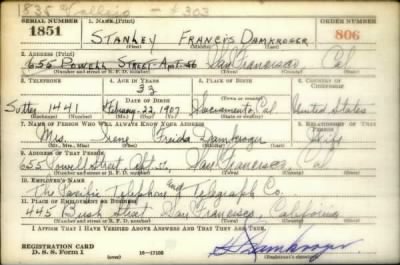 1835 Vallejo - #303
SERIAL NUMBER 1. NAME (Print) ORDER NUMBER
1851 STANLEY FRANCIS DAMKROGER 806
(First) (Middle) (Last)
2. ADDRESS (Print)
655 POWELL STREET Apt San Francisco Cal
(Number and street or R. F. D. number) (Town) (County) (State)
3. TELEPHONE 4. AGE IN YEARS 5. PLACE OF BIRTH 6. COUNTRY OF CITIZENSHIP
33
DATE OF BIRTH (Town or county)
Sutter 1441 February 22, 1907 Sacramento, Cal United States
(Exchange) (Number) (Mo.) (Day) (Yr.) (State or country)
7. NAME OF PERSON WHO WILL ALWAYS KNOW YOUR ADDRESS 8. RELATIONSHIP OF THAT PERSON
Mrs. Irene Freida Damkroger Wife
(Mr., Mrs., Miss) (First) (Middle) (Last)
9. ADDRESS OF THAT PERSON
655 Powell Street, Apt San Francisco, Cal
(Number and street or R. F. D. number) (Town) (County) (State)
10. EMPLOYER'S NAME
The Pacific Telephone and Telegraph Co.
11. PLACE OF EMPLOYMENT OR BUSINESS
445 Bush Street San Francisco, California
(Number and street or R. F. D. number) (Town) (County) (State)
I AFFIRM THAT I HAVE VERIFIED ABOVE ANSWERS AND THAT THEY ARE TRUE.
REGISTRATION CARD
D. S. S. Form 1 (over) 16-17105 Damkroger
(Registrant's signature)